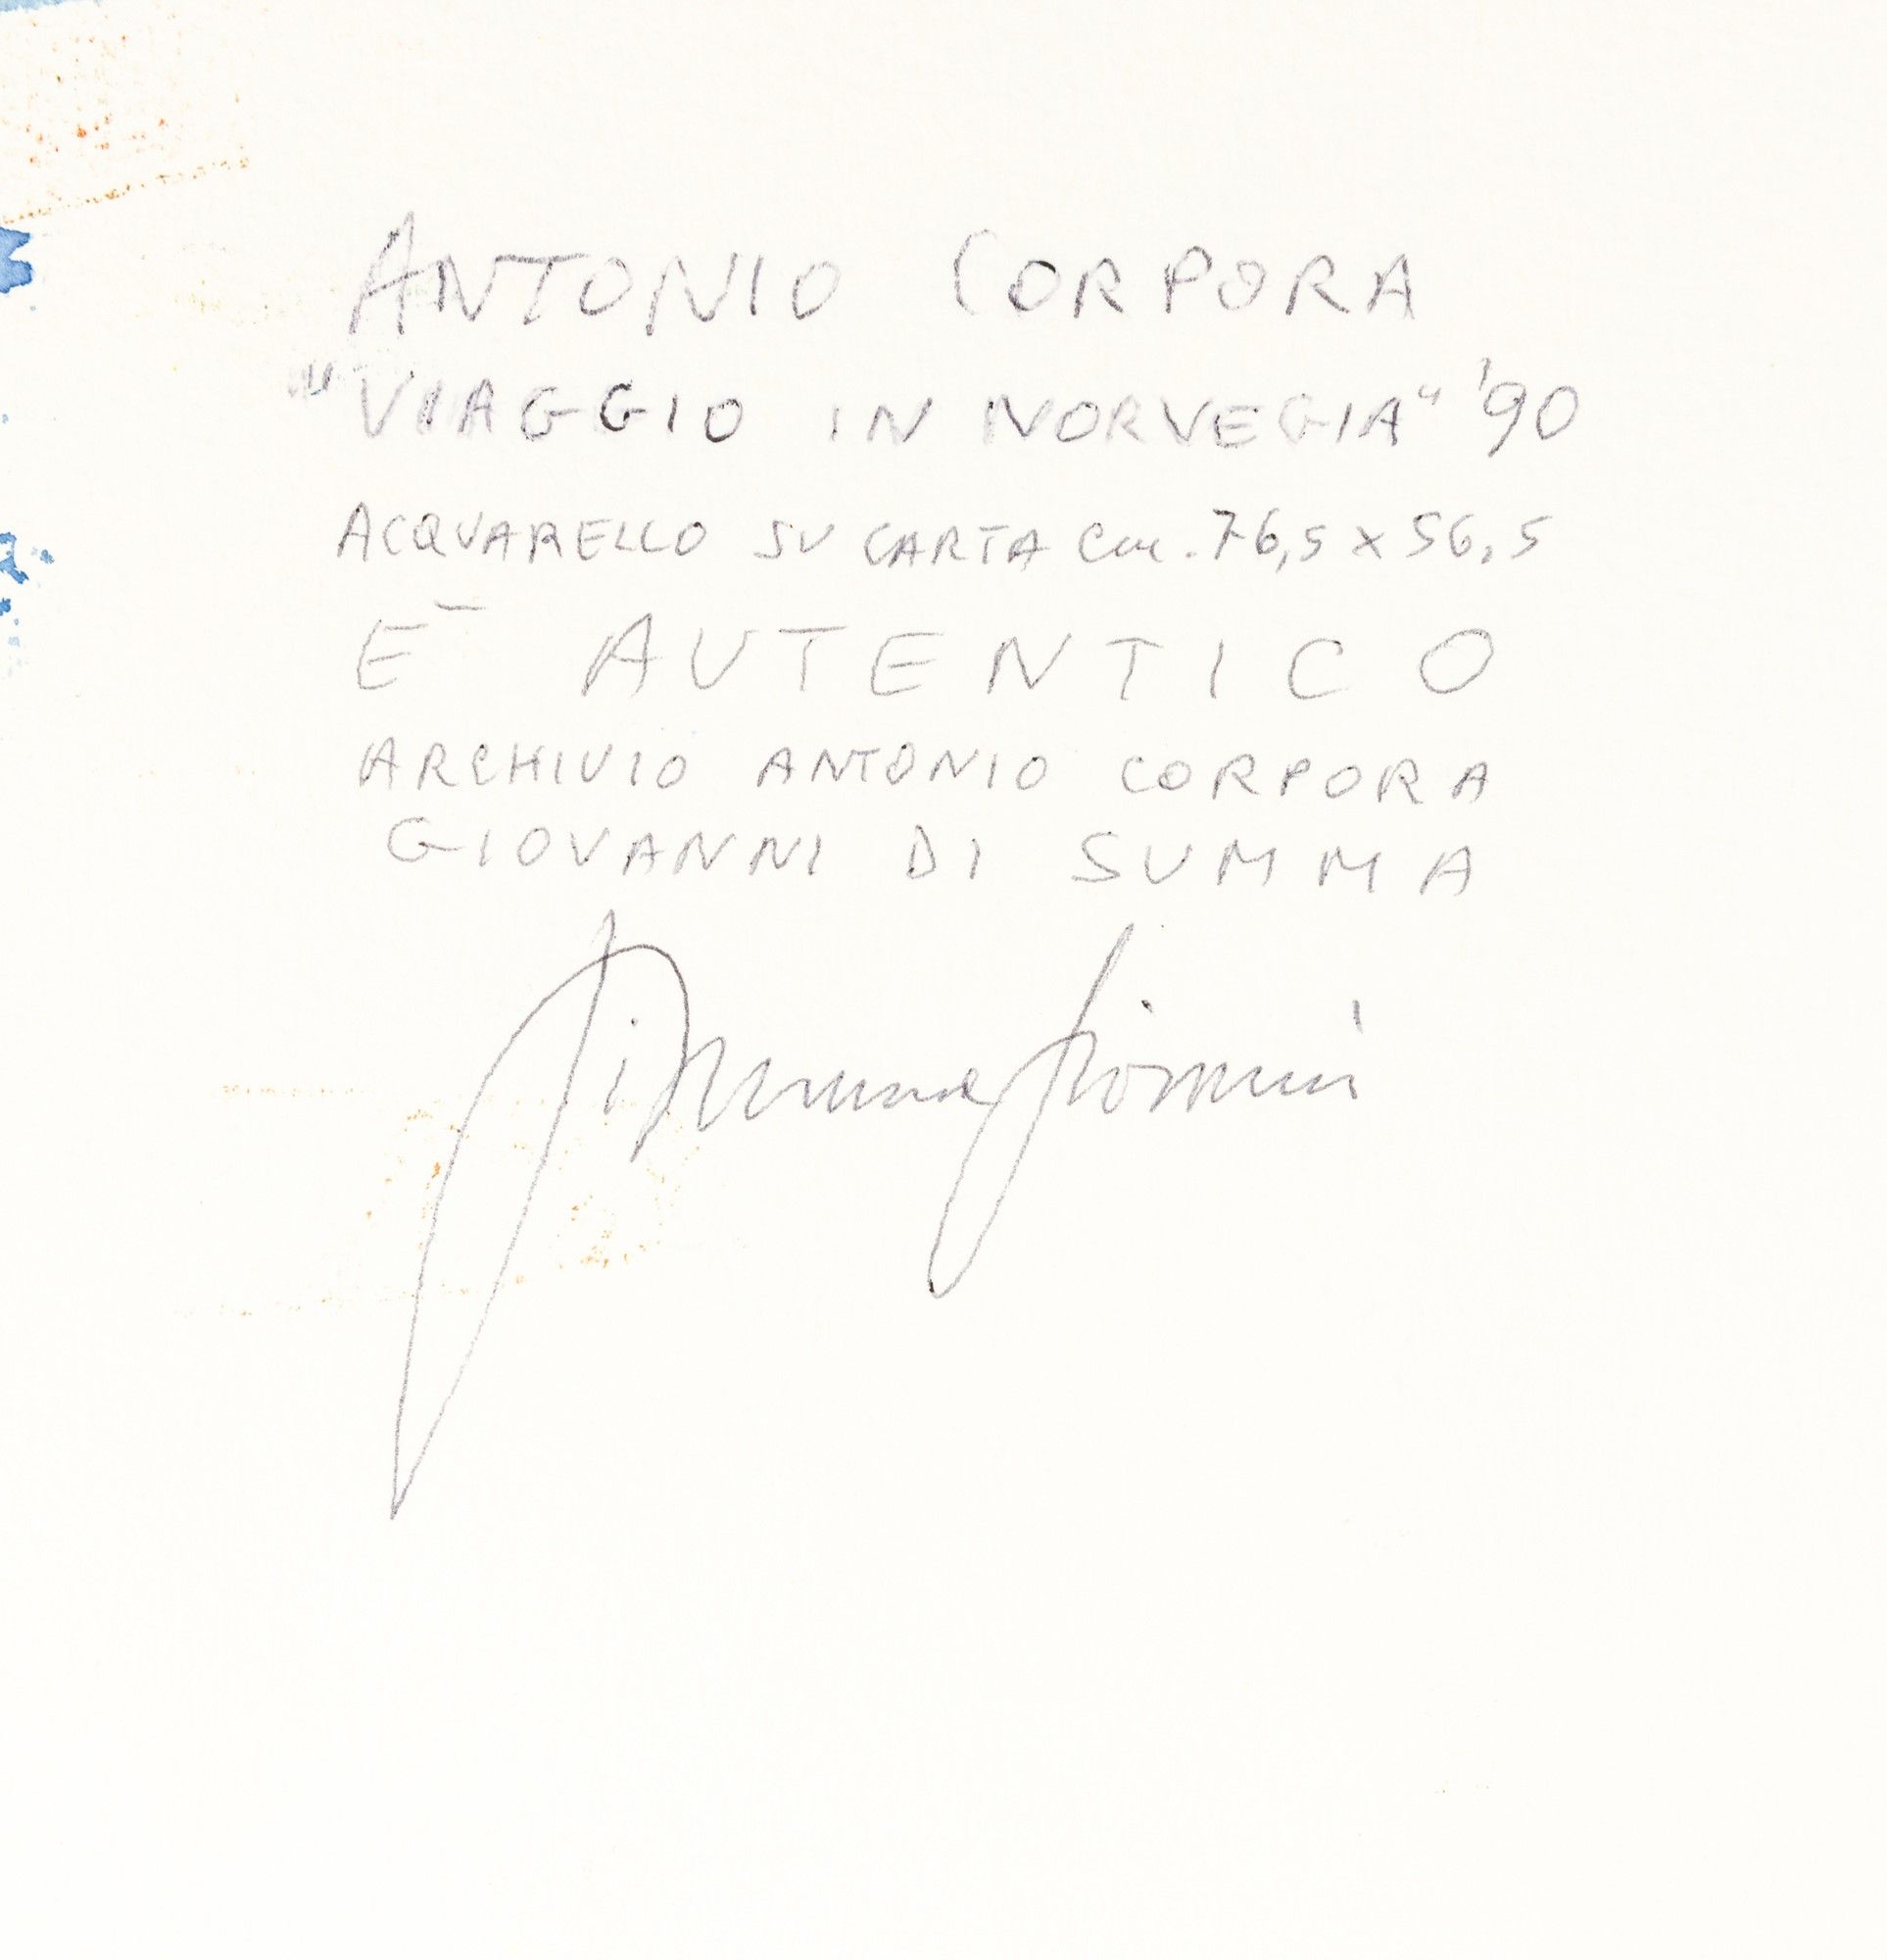 ANTONIO CORPORA
"VIAGGIO IN NORVEGIA" '90
ACQUARELLO SU CARTA cm. 76,5 x 56,5
E' AUTENTICO
ARCHIVIO ANTONIO CORPORA
GIOVANNI DI SUMMA
Di Summa Giovanni